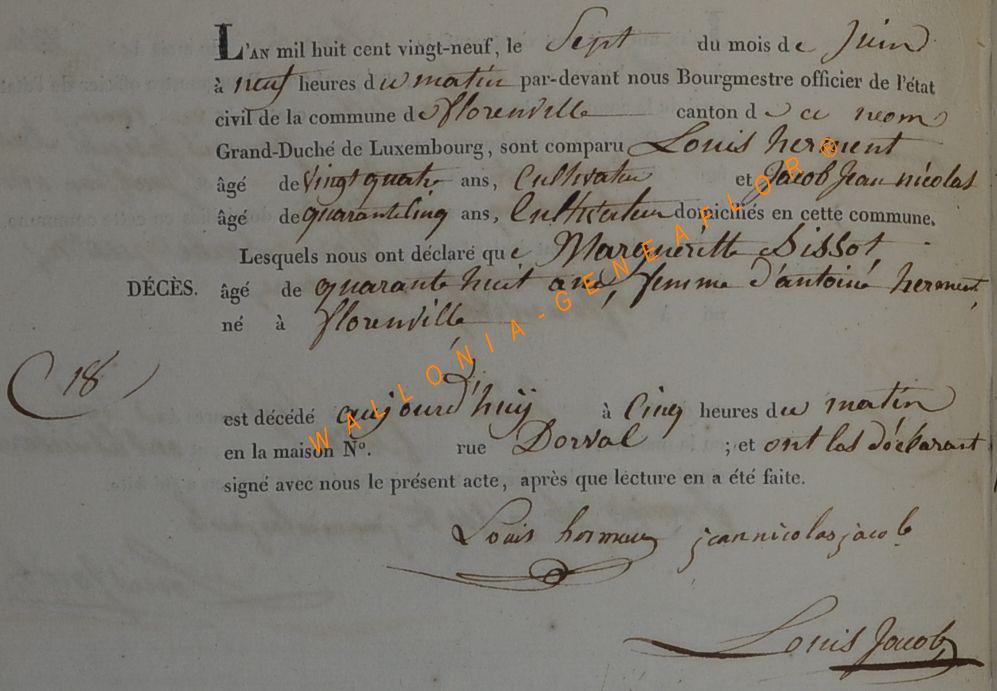 L'AN mil huit cent vingt-neuf, le Sept du mois de Juin
à neuf heures du matin par-devant nous Bourgmestre officier de l'état
civil de la commune de florenville canton de ce nom
Grand-Duché de Luxembourg, sont comparu Louis herment
âgé de vingt quatre ans, Cultivateur et Jacob Jean nicolas
âgé de quarante Cinq ans, Cultivateur domiciliés en cette commune.
Lesquels nous ont déclaré que Margueritte Sissot,
DÉCÈS. âgé de quarante huit ans, femme d'antoine herment,
né à florenville
18
est décédé aujourd'huy à Cinq heures du matin
en la maison N°. rue Dorval ; et ont les déclarant
signé avec nous le présent acte, après que lecture en a été faite.
Louis herment jeannicolas jacob
Louis Jacob
WALLONIA-GENEAFLOR ®